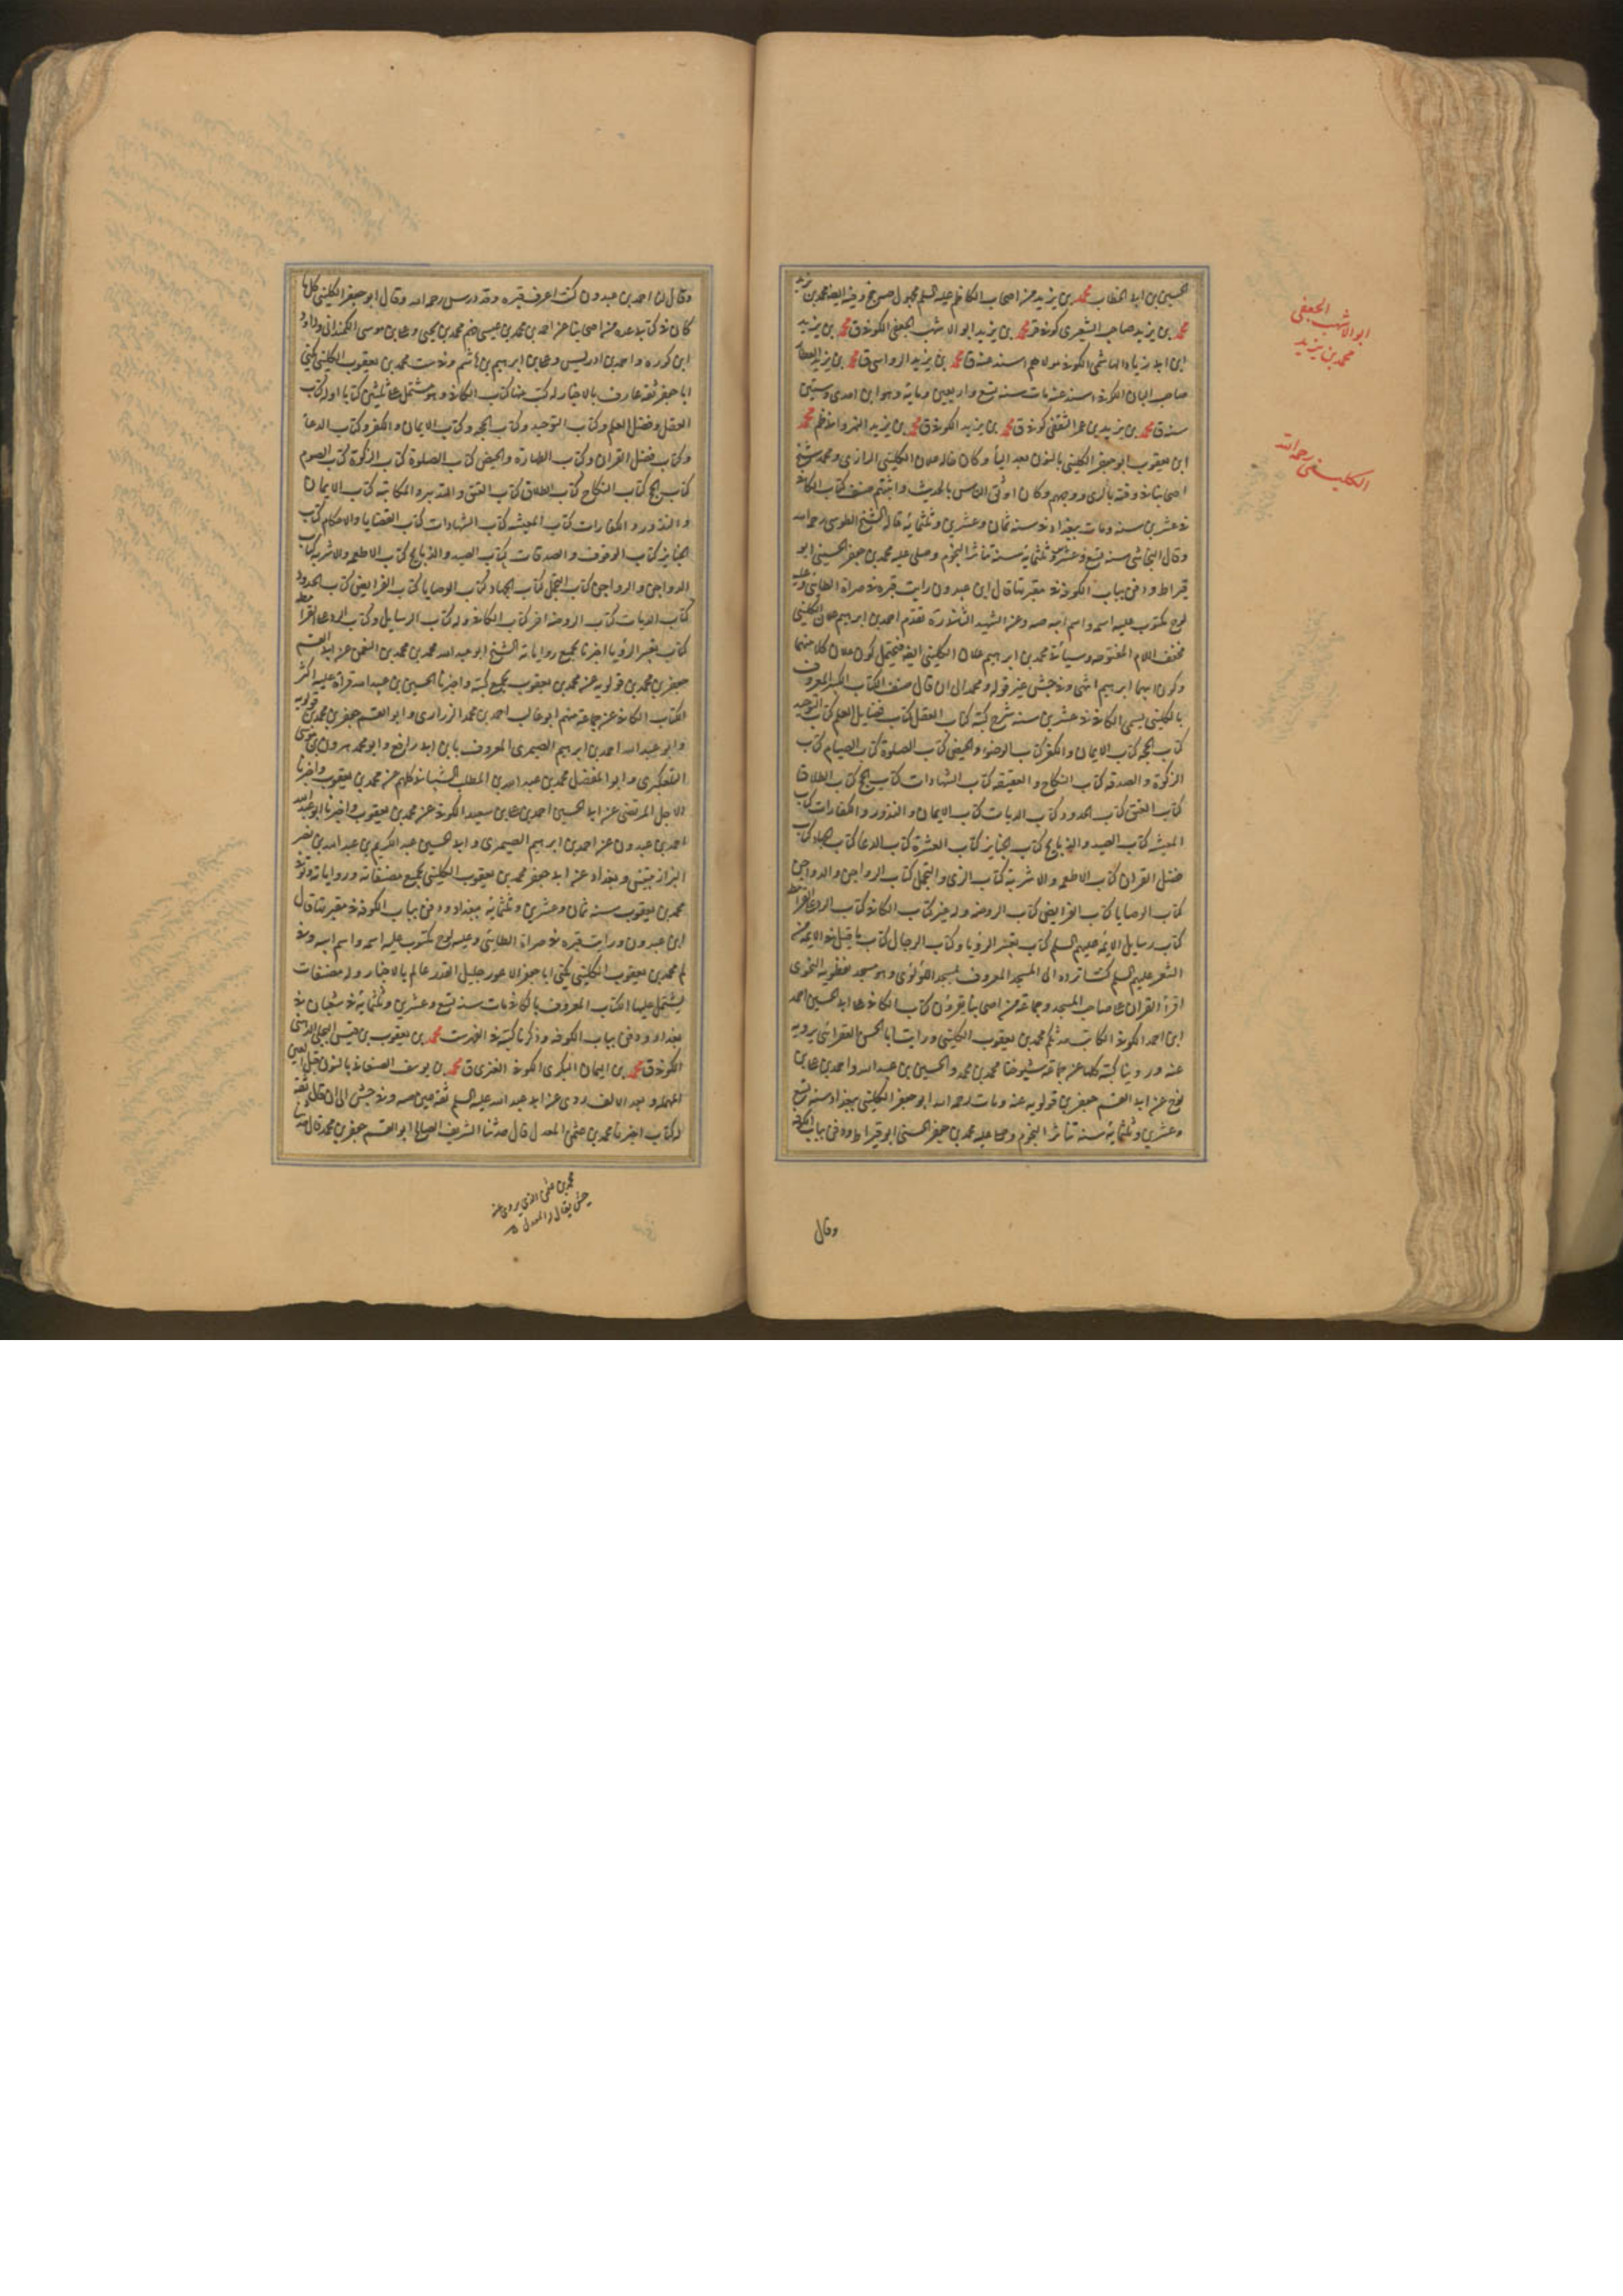 الحسين بن ابى الخطاب محمد بن يزيد من اصحاب الكاظم عليه السلم مجهول
محمد بن يزيد صاحب الشعرى كوفى ق محمد بن يزيد ابو الاشهب الجعفى الكوفى ق محمد بن يزيد
ابن ابى زياد الهاشمى الكوفى مولاهم اسند عنه ق محمد بن يزيد الرواسى ق محمد بن يزيد العطار
صاحب البان الكوفى اسند عنه مات سنة تسع واربعين وماية وهو ابن احدى وستين
سنة ق محمد بن يزيد بن عمر الثقفى كوفى ق محمد بن يزيد الكوفى ق محمد بن يزيد النهروانى ظم محمد
ابن يعقوب ابو جعفر الكلينى بالنون بعد اليا وكان خاله علان الكلينى الرازى ومحمد شيخ
اصحابنا فى وقته بالرى ووجههم وكان اوثق الناس بالحديث واثبتهم صنف كتاب الكافى
فى عشرين سنة ومات ببغداد فى سنة ثمان وعشرين وثلثمائة قاله الشيخ الطوسى رحمه الله
وقال النجاشى سنة تسع وعشرين وثلثماية سنة تناثر النجوم وصلى عليه محمد بن جعفر الحسينى ابو
قيراط ودفن بباب الكوفة فى مقبرتها قال ابن عبدون رايت قبره فى صراة الطائى وعليه
لوح مكتوب عليه اسمه واسم ابيه صه وعن الشهيد الثانى تقدم احمد بن ابراهيم علان الكلينى
مخفف اللام المفتوحة وسيأتى محمد بن ابراهيم علان الكلينى ايضا فيحتمل كون علان كلا منهما
وكون ابيهما ابراهيم انتهى وفى جشى غير قوله ومحمد الى ان قال صنف الكتاب الكبير المعروف
بالكلينى يسمى الكافى فى عشرين سنة شرح كتبه كتاب العقل كتاب فضايل العلم كتاب التوحيد
كتاب الحجة كتاب الايمان والكفر كتاب الوضوء والحيض كتاب الصلوة كتاب الصيام كتاب
الزكوة والصدقة كتاب النكاح والعقيقة كتاب الشهادات كتاب الحج كتاب الطلاق
كتاب العتق كتاب الحدود كتاب الديات كتاب الايمان والنذور والكفارات كتاب
المعيشة كتاب الصيد والذبايح كتاب الجنايز كتاب العشرة كتاب الدعا كتاب الجهاد كتاب
فضل القران كتاب الاطعمة والاشربة كتاب الزى والتجمل كتاب الرواجن والدواجن
كتاب الوصايا كتاب الفرايض كتاب الروضة وله غير كتاب الكافى كتاب الرد على القرامطة
كتاب رسايل الائمة عليهم السلم كتاب تعبير الرؤيا وكتاب الرجال كتاب ما قيل فى الائمة من
الشعر عليهم السلم كنت اتردد الى المسجد المعروف بمسجد اللؤلؤى وهو مسجد نفطويه النحوى
اقرأ القران على صاحب المسجد وجماعة من اصحابنا يقرؤن كتاب الكافى على ابى الحسين احمد
ابن احمد الكوفى الكاتب حدثكم محمد بن يعقوب الكلينى ورايت ابا الحسن العقرانى يرويه
عنه وروينا كتبه كلها عن جماعة شيوخنا محمد بن محمد والحسين بن عبيد الله واحمد بن على بن
نوح عن ابى القسم جعفر بن قولويه عنه ومات رحمه الله ابو جعفر الكلينى ببغداد سنة تسع
وعشرين وثلثماية سنة تناثر النجوم وصلى عليه محمد بن جعفر الحسنى ابو قيراط ودفن بباب الكوفة
وقال
ابو الاشهب الجعفى
محمد بن يزيد
الكلينى رحمه الله
وقال لنا احمد بن عبدون كنت اعرف قبره وقد درس رحمه الله وقال ابو جعفر الكلينى كل ما
كان فى كتابى عدة من اصحابنا عن احمد بن محمد بن عيسى فهم محمد بن يحيى وعلى بن موسى الكمندانى وداود
ابن كورة واحمد بن ادريس وعلى بن ابراهيم بن هاشم وفى ست محمد بن يعقوب الكلينى يكنى
ابا جعفر ثقة عارف بالاخبار له كتب منها كتاب الكافى وهو مشتمل على ثلثين كتابا اوله كتاب
العقل وفضل العلم وكتاب التوحيد وكتاب الحجة وكتاب الايمان والكفر وكتاب الدعا
وكتاب فضل القران وكتاب الطهارة والحيض كتاب الصلوة كتاب الزكوة كتاب الصوم
كتاب الحج كتاب النكاح كتاب الطلاق كتاب العتق والتدبير والمكاتبة كتاب الايمان
والنذور والكفارات كتاب المعيشة كتاب الشهادات كتاب القضايا والاحكام كتاب
الجنايز كتاب الوقوف والصدقات كتاب الصيد والذبايح كتاب الاطعمة والاشربة كتاب
الدواجن والرواجن كتاب التجمل كتاب الجهاد كتاب الوصايا كتاب الفرايض كتاب الحدود
كتاب الديات كتاب الروضة اخر كتاب الكافى وله كتاب الرسايل وكتاب الرد على القرامطة
كتاب تعبير الرؤيا اخبرنا بجميع رواياته الشيخ ابو عبد الله محمد بن محمد بن النعمن عن ابى القسم
جعفر بن محمد بن قولويه عن محمد بن يعقوب بجميع كتبه واخبرنا الحسين بن عبيد الله قراة عليه اكثر
الكتاب الكافى عن جماعة منهم ابو غالب احمد بن محمد الزرارى وابو القسم جعفر بن محمد بن قولويه
وابو عبد الله احمد بن ابراهيم الصيمرى المعروف بابن ابى رافع وابو محمد هرون بن موسى
التلعكبرى وابو المفضل محمد بن عبد الله بن المطلب الشيبانى كلهم عن محمد بن يعقوب واخبرنا
الاجل المرتضى عن ابى الحسين احمد بن على بن سعيد الكوفى عن محمد بن يعقوب واخبرنا ابو عبد الله
احمد بن عبدون عن احمد بن ابراهيم الصيمرى وابى الحسين عبد الكريم بن عبد الله بن نصر
البزاز بتنيس وبغداد عن ابى جعفر محمد بن يعقوب الكلينى بجميع مصنفاته ورواياته وتوفى
محمد بن يعقوب سنة ثمان وعشرين وثلثماية ببغداد ودفن بباب الكوفة فى مقبرتها قال
ابن عبدون ورايت قبره فى صراة الطائى وعليه لوح مكتوب عليه اسمه واسم ابيه وفى
لم محمد بن يعقوب الكلينى يكنى ابا جعفر الاعور جليل القدر عالم بالاخبار وله مصنفات
يشتمل عليها الكتاب المعروف بالكافى مات سنة تسع وعشرين وثلثماية فى شعبان فى
بغداد ودفن بباب الكوفة وذكرنا كتبه فى الفهرست محمد بن يعقوب بن قيس البجلى الدهنى
الكوفى ق محمد بن اليمان البكرى الكوفى العنزى ق محمد بن يوسف الصنعانى بالنون قبل العين
المهملة وبعد الالف روى عن ابى عبد الله عليه السلم ثقة عين صه وفى جش الى ان قال ثقة
له كتاب اخبرنا محمد بن عثمن المعدل قال حدثنا الشريف الصالح ابو القسم جعفر بن محمد قال حدثنا
محمد بن عثمن الذى يروى عنه
جش يقال له المعدل